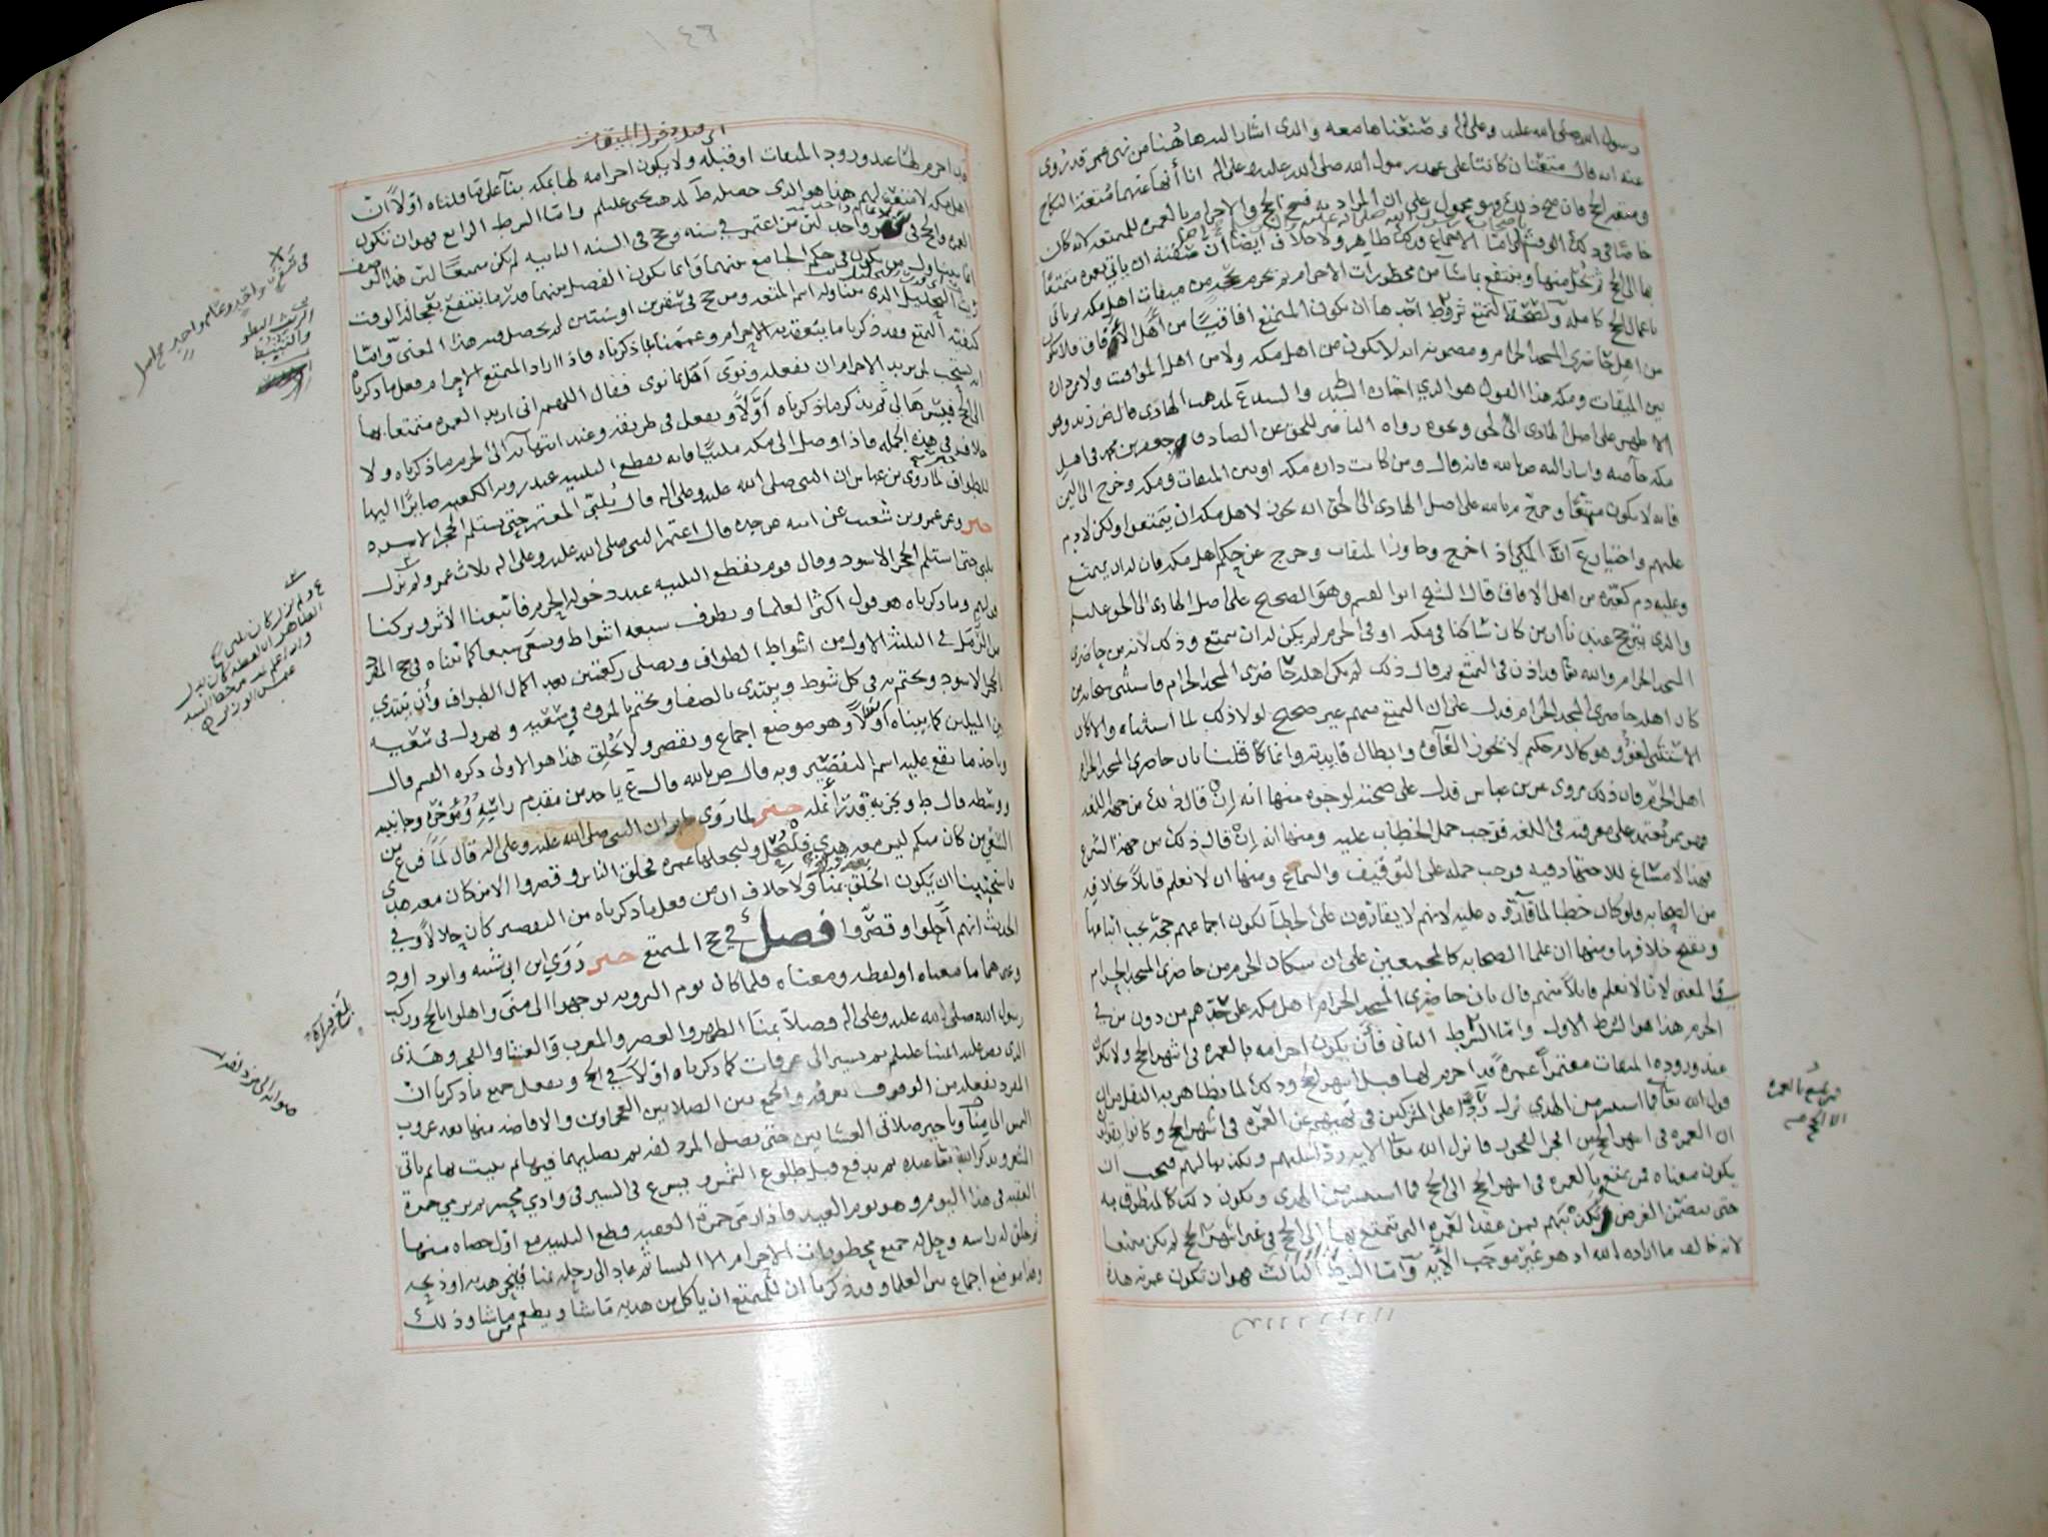 رسول الله صلى الله عليه وعلى اله وصنعناها معه والذي اشار اليه هاهنا من نهي عمر قد روي
عنه انه قال متعتان كانتا على عهد رسول الله صلى الله عليه وعلى اله انا أنهى عنهما متعة النكاح
ومتعة الحج فان صح ذلك وهو محمول على ان المراد به فسخ الحج والاحرام بالعمرة للمتعة لانه كان
خاصا في ذلك الوقت واما الاجماع فذلك ظاهر ولا خلاف ايضا أن صفته ان ياتي بعمرة متمتعا
بها الى الحج ثم يحل منها وينتفع بما شا من محظورات الاحرام ثم يحرم بحجة من ميقات اهل مكه ثم ياتي
باعمال الحج كامله ولصحة التمتع شروط احدها ان يكون المتمتع افاقيا من أهل الافاق فلا يكون
من اهل حاضري المسجد الحرام ومضمونه انه لا يكون من اهل مكه ولا من اهل المواقيت ولا من داره
بين الميقات ومكه هذا القول هو الذي اختاره السيد
الاظهر على اصل الهادي الى الحق ونحوه رواه الناصر للحق عن الصادق جعفر بن محمد في اهل
مكه خاصه واشار اليه ض بالله فانه قال ومن كانت داره مكه او بين الميقات ومكه وخرج الى اليمن
فانه لا يكون متمتعا وخرج م بالله على اصل الهادي الى الحق انه يجوز لاهل مكه ان يتمتعوا ولكن لا دم
عليهم واختيار ع أن المكي اذا خرج وجاوز الميقات وخرج عن حكم اهل مكه فان له ان يتمتع
وعليه دم كغيره من اهل الافاق قال الشيخ ابو القسم وهو الصحيح على اصل الهادي الى الحق عليلم
والذي يترجح عندنا أن من كان ساكنا في مكه او في الحرم لم يكن له ان يتمتع وذلك لانه من حاضري
المسجد الحرام والله تعا قد اذن في التمتع ثم قال ذلك لمن لم يكن اهله حاضري المسجد الحرام فاستثنى سبحانه من
كان اهله حاضري المسجد الحرام فدل على ان التمتع منهم غير صحيح لولا ذلك لما استثناه والا كان
الاستثنى لغوا وهو كلام حكيم لا يجوز الغآوه وابطال فايدته وانما قلنا بان حاضري المسجد الحرام
اهل الحرم فان ذلك مروي عن بن عباس فدل على صحته لوجوه منها أنه إن قال ذلك من جهة اللغه
فهو ممن يعتمد على معرفته في اللغه فوجب حمل الخطاب عليه ومنها انه إن قال ذلك من جهة الشرع
فهذا لا مساغ للاجتهاد فيه فوجب حمله على التوقيف والسماع ومنها ان لا نعلم قايلا بخلافه
من الصحابه فلو كان خطا لما قآروه عليه لانهم لا يقارون على الخطآ لكون اجماعهم حجة يجب اتباعها
ويقبح خلافها ومنها ان علما الصحابه كالمجمعين على ان سكان الحرم من حاضري المسجد الحرام
في المعنى لانا لا نعلم قايلا منهم قال بان حاضري المسجد الحرام اهل مكه على حدهم من دون من في
الحرم هذا هو الشرط الاول واما الشرط الثاني فأن يكون احرامه بالعمره في اشهر الحج ولا يكون
عند وروده الميقات معتمرا عمرة قد احرم لها قبل اشهر الحج وذلك لما تظاهر به النقل من ان
قول الله تعا فما استيسر من الهدي نزل ردا على المشركين في نهيهم عن العمره في اشهر الحج وكانوا يقولون
ان العمره في اشهر الحج من افجر الفجور فانزل الله تعا الايه ردا عليهم وتكذيبا لهم فيجب ان
يكون معناه فمن تمتع بالعمره في اشهر الحج الى الحج فما استيسر من الهدي ويكون ذلك كالمنطوق به
حتى يتضمن الغرض وتكذيبهم فمن عقد العمره التي يتمتع بها الى الحج في غير اشهر الحج لم يكن متمتعا
لانه خالف ما اراده الله اذ هو غير موجب الآية وآما الشرط الثالث فهو ان تكون عمرته هذه
فمن تمتع بالعمره
الى الحج صح
اي قبل دخول الميقات
قد احرم لها عند ورود الميقات او قبله ولا يكون احرامه لها بمكه بنآ على ما قلناه اوّلا أن
اهل مكه لا متعة لهم هذا هو الذي حصله ط لمذهب يحيى عليلم واما الشرط الرابع فهو ان تكون
العمره والحج في سفر واحد لئن من اعتمر في سنه وحج في السنه الثانيه لم يكن متمتعا لئن هذا الوصف
انما يتناول من يكون في حكم الجامع بينهما وانما يكون الفصل بينهما قدر ما ينتفع بتعجاله الوقت
كيفية التمتع وقد ذكرنا ما ينعقد به الاحرام وعممنا بما ذكرناه فاذا اراد المتمتع الاحرام فعل ما ذكرنا
انه يستحب لمن يريد الاحرام ان يفعله ونوى آقلما نوى فقال اللهم اني اريد العمره متمتعا بها
الى الحج فيسرها لي ثم يذكر ما ذكرناه أوّلا ويفعل في طريقه وعند انتهائه الى الحرم ما ذكرناه ولا
خلاف في هذه الجمله فاذا وصل الى مكه ملبيا فانه يقطع التلبيه عند رويه الكعبه صايرا اليها
للطواف لما روى بن عباس ان النبي صلى الله عليه وعلى اله قال يلبي المعتمر حتى يستلم الحجر الاسود
خبر وعن عمرو بن شعيب عن ابيه عن جده قال اعتمر النبي صلى الله عليه وعلى اله ثلاث عمر ولم يزل
يلبي حتى استلم الحجر الاسود وقال قوم يقطع التلبيه عند دخوله الحرم فاتبعنا الأثر وتركنا
قولهم وما ذكرناه هو قول اكثر العلما ويطوف سبعه اشواط ويسعى سبعا كما بيناه في حج المفرد
من الرمل في الثلثه الاول من اشواط الطواف ويصلى ركعتين بعد اكمال الطواف وأن يبتدي
الحجر الاسود ويختم به في كل شوط ويبتدي بالصفا ويختم بالمروه في سعيه ويهرول في سعيه
بين الميلين كما بيناه أوّلا وهو موضع اجماع ويقصر ولا يحلق هذا هو الاولى ذكره القسم قال
وياخذ ما يقع عليه اسم التقصير وبه قال ض بالله قال ع ياخذ من مقدم رأسه ومؤخره وجانبيه
ووسطه قال ط ويجزيه قدر أنمله خبر لما روى جابر ان النبي صلى الله عليه وعلى اله قال لما فرغ من
السعي من كان منكم ليس معه هدي فليحل وليجعلها عمره فحلق الناس وقصروا الا من كان معه هدي
فاستحببنا ان يكون الحلق بمنا ولا خلاف ان من فعل ما ذكرناه من التقصير كان حلالا وفي
الحديث انهم أحلوا وقصّروا فصل في حج المتمتع خبر رَوَى ابن ابي شيبه وابو داود
وغيرهما ما معناه او لفظه ومعناه فلما كان يوم الترويه توجهوا الى منى واهلوا بالحج وركب
رسول الله صلى الله عليه وعلى اله فصلا بمنا الظهر والعصر والمغرب والعشا والفجر وهذى
الذي نص عليه ايمتنا عليلم ثم يسير الى عرفات كما ذكرناه اوّلا في الحج ويفعل جميع ما ذكرنا ان
المفرد يفعله من الوقوف بعرفه والجمع بين الصلاتين العجماوين والافاضه منها بعد غروب
الشمس الى منا وتاخير صلاتي العشايين حتى يصل المزدلفه ثم يصليهما فيها ثم يبيت بها ثم ياتي
المشعر ويذكر الله تعا عنده ثم يدفع قبل طلوع الشمس ويسرع في السير في وادي محسر ثم يرمي جمرة
العقبه في هذا اليوم وهو يوم العيد فاذا رمى جمرة العقبه قطع التلبيه مع اوّل حصاه منها
ثم حلق له راسه وحل له جميع محظورات الاحرام الا النسا ثم عاد الى رحله بمنا فينحر هديه او ذبحه
وهذا موضع اجماع من العلما وقد ذكرنا ان للمتمتع ان ياكل من هديه ما شا ويطعم من شا وذلك
في سفر واحد وعام واحد
بلغ قراءة
صوابه الى مزدلفه